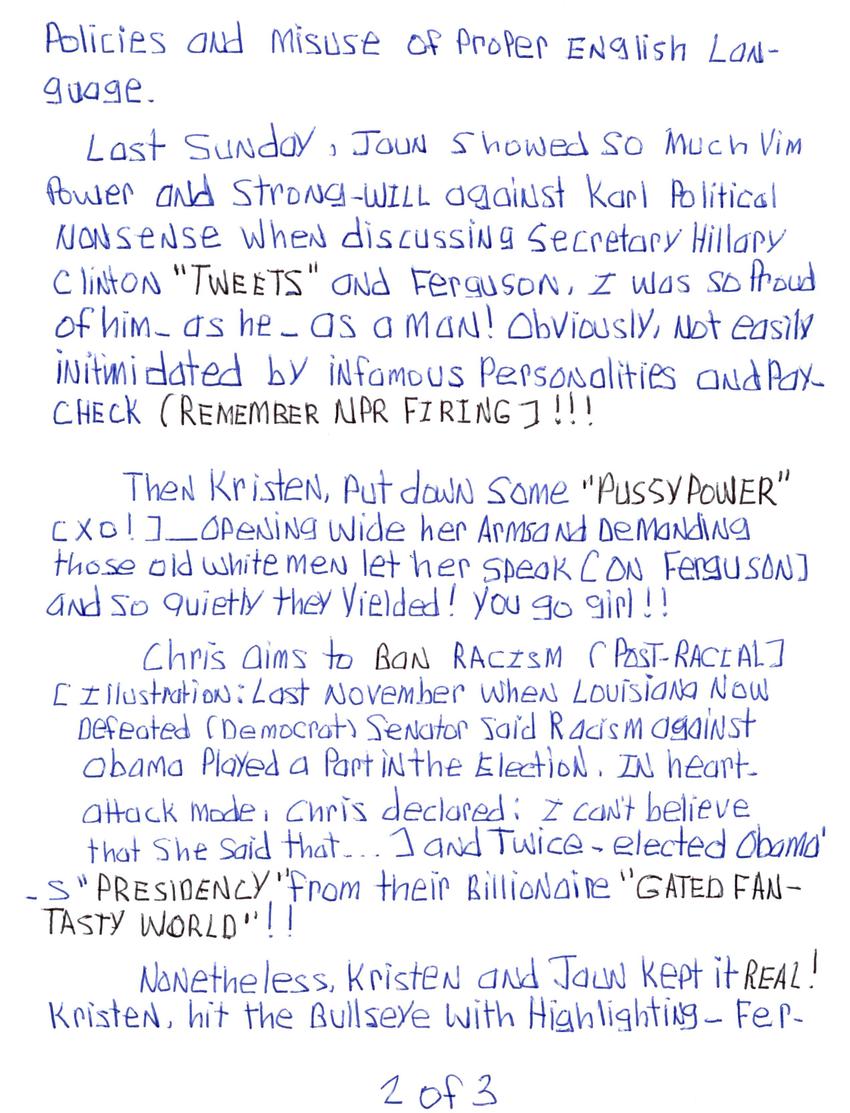 Policies and Misuse of Proper English Lan-
guage.
Last Sunday, Jaun showed so Much Vim
Power and Strong-WILL against Karl Political
Nonsense when discussing Secretary Hillary
Clinton "TWEETS" and Ferguson. I was so Proud
of him- as he- as a man! Obviously, Not easily
initimidated by infamous Personalities and Pay-
CHECK (REMEMBER NPR FIRING]!!!
Then Kristen, Put down Some "PUSSYPOWER"
[XO!]__OPENING Wide her Arms and Demanding
those old white men let her speak [ON Ferguson]
and so quietly they Yielded! You go girl!!
Chris aims to BAN RACISM (POST-RACIAL]
[Illustration: Last November when Louisiana Now
Defeated (Democrat) Senator said Racism against
Obama Played a Part in the Election. IN heart-
attack mode, Chris declared: I can't believe
that She Said that....] and Twice-elected Obama'
-S "PRESIDENCY" from their Billionaire "GATED FAN-
TASTY WORLD"!!
Nonetheless, Kristen and Jaun kept it REAL!
Kristen, hit the Bullseye with Highlighting- Fer-
2 of 3